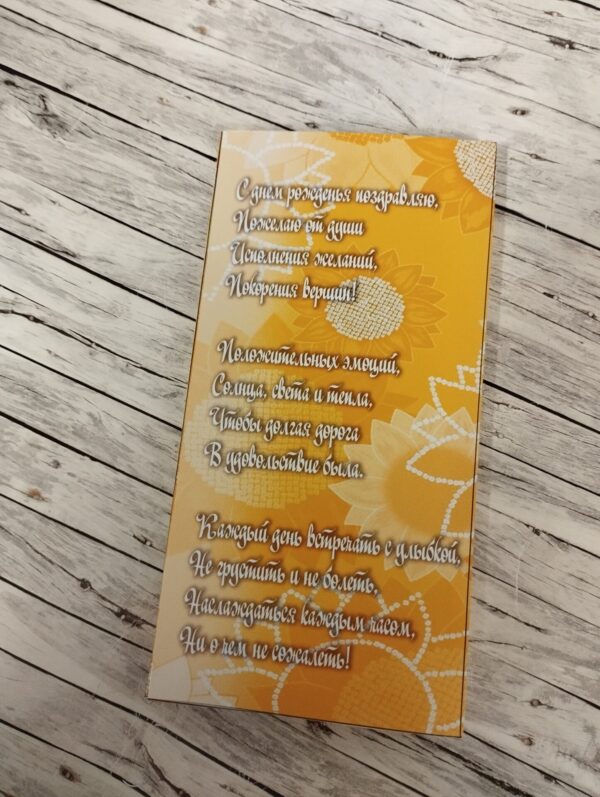 С днем рожденья поздравляю,
Пожелаю от души
Исполнения желаний,
Покорения вершин!
Положительных эмоций,
Солнца, света и тепла,
Чтобы долгая дорога
В удовольствие была.
Каждый день встречать с улыбкой,
Не грустить и не болеть,
Наслаждаться каждым часом,
Ни о чем не сожалеть!